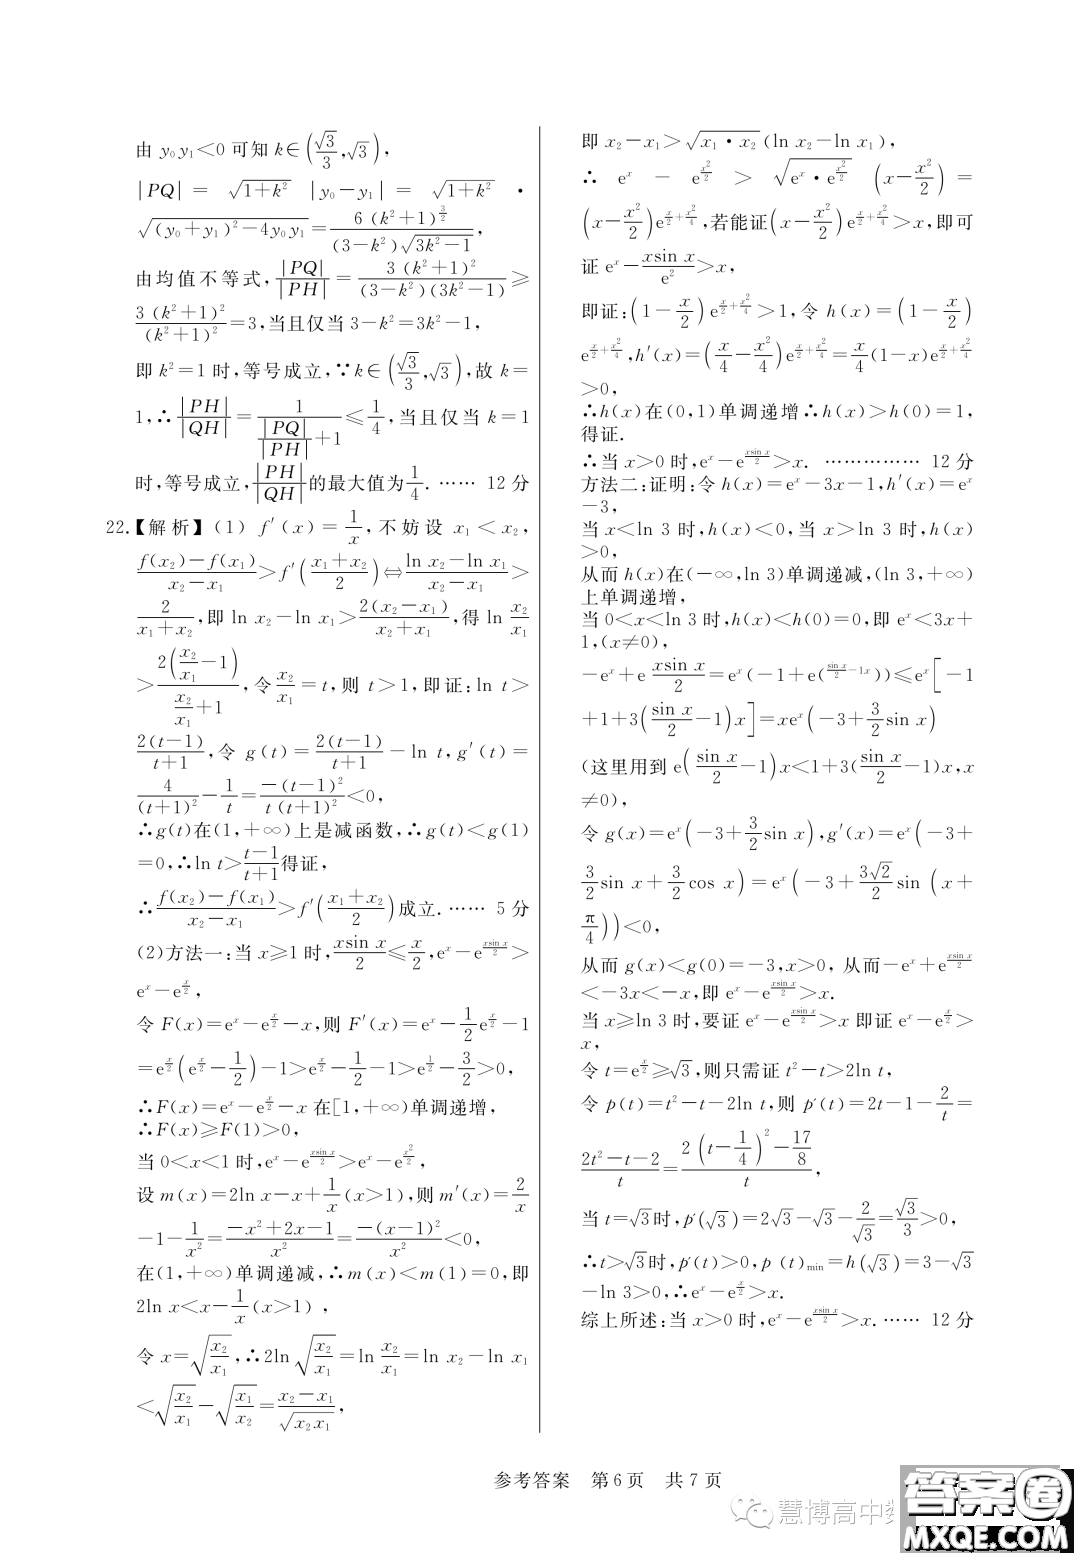 由 y₀y₁<0 可知 k∈(√3/3,√3),
|PQ| = √(1+k²) |y₀−y₁| = √(1+k²) ·
√((y₀+y₁)²−4y₀y₁)=6(k²+1)^(3/2)/((3−k²)√(3k²−1)),
由均值不等式,|PQ|/|PH|=3(k²+1)²/((3−k²)(3k²−1))≥
3(k²+1)²/(k²+1)²=3,当且仅当 3−k²=3k²−1,
即 k²=1 时,等号成立,∵k∈(√3/3,√3),故 k=
1,∴|PH|/|QH|=1/(|PQ|/|PH|+1)≤1/4,当且仅当 k=1
时,等号成立,|PH|/|QH|的最大值为1/4. …… 12 分
22.【解析】(1) f′(x)=1/x,不妨设 x₁<x₂,
(f(x₂)−f(x₁))/(x₂−x₁)>f′((x₁+x₂)/2)⇔(ln x₂−ln x₁)/(x₂−x₁)>
2/(x₁+x₂),即 ln x₂−ln x₁>2(x₂−x₁)/(x₂+x₁),得 ln x₂/x₁
>2(x₂/x₁−1)/(x₂/x₁+1),令x₂/x₁=t,则 t>1,即证:ln t>
2(t−1)/(t+1),令 g(t)=2(t−1)/(t+1)−ln t,g′(t)=
4/(t+1)²−1/t=−(t−1)²/(t(t+1)²)<0,
∴g(t)在(1,+∞)上是减函数,∴g(t)<g(1)
=0,∴ln t>(t−1)/(t+1)得证,
∴(f(x₂)−f(x₁))/(x₂−x₁)>f′((x₁+x₂)/2)成立. …… 5 分
(2)方法一:当 x≥1 时,xsin x/2≤x/2,eˣ−e^(xsin x/2)>
eˣ−e^(x/2),
令 F(x)=eˣ−e^(x/2)−x,则 F′(x)=eˣ−1/2e^(x/2)−1
=e^(x/2)(e^(x/2)−1/2)−1>e^(x/2)−1/2−1>e^(1/2)−3/2>0,
∴F(x)=eˣ−e^(x/2)−x 在[1,+∞)单调递增,
∴F(x)≥F(1)>0,
当 0<x<1 时,eˣ−e^(xsin x/2)>eˣ−e^(x²/2),
设 m(x)=2ln x−x+1/x(x>1),则 m′(x)=2/x
−1−1/x²=(−x²+2x−1)/x²=−(x−1)²/x²<0,
在(1,+∞)单调递减,∴m(x)<m(1)=0,即
2ln x<x−1/x(x>1),
令 x=√(x₂/x₁),∴2ln √(x₂/x₁)=ln x₂/x₁=ln x₂−ln x₁
<√(x₂/x₁)−√(x₁/x₂)=(x₂−x₁)/√(x₂x₁),
即 x₂−x₁>√(x₁·x₂)(ln x₂−ln x₁),
∴ eˣ − e^(x²/2) > √(eˣ·e^(x²/2)) (x−x²/2) =
(x−x²/2)e^(x/2+x²/4),若能证(x−x²/2)e^(x/2+x²/4)>x,即可
证 eˣ−xsin x/e²>x,
即证:(1−x/2)e^(x/2+x²/4)>1,令 h(x)=(1−x/2)
e^(x/2+x²/4),h′(x)=(x/4−x²/4)e^(x/2+x²/4)=x/4(1−x)e^(x/2+x²/4)
>0,
∴h(x)在(0,1)单调递增∴h(x)>h(0)=1,
得证.
∴当 x>0 时,eˣ−e^(xsin x/2)>x. …………… 12 分
方法二:证明:令 h(x)=eˣ−3x−1,h′(x)=eˣ
−3,
当 x<ln 3 时,h(x)<0,当 x>ln 3 时,h(x)
>0,
从而 h(x)在(−∞,ln 3)单调递减,(ln 3,+∞)
上单调递增,
当 0<x<ln 3 时,h(x)<h(0)=0,即 eˣ<3x+
1,(x≠0),
−eˣ+e xsin x/2=eˣ(−1+e(^(sin x/2−1x)))≤eˣ[−1
+1+3(sin x/2−1)x]=xeˣ(−3+3/2sin x)
(这里用到 e(sin x/2−1)x<1+3(sin x/2−1)x,x
≠0),
令 g(x)=eˣ(−3+3/2sin x),g′(x)=eˣ(−3+
3/2sin x+3/2cos x)=eˣ(−3+3√2/2sin(x+
π/4))<0,
从而 g(x)<g(0)=−3,x>0, 从而−eˣ+e^(xsin x/2)
<−3x<−x,即 eˣ−e^(xsin x/2)>x.
当 x≥ln 3 时,要证 eˣ−e^(xsin x/2)>x 即证 eˣ−e^(x/2)>
x,
令 t=e^(x/2)≥√3,则只需证 t²−t>2ln t,
令 p(t)=t²−t−2ln t,则 p′(t)=2t−1−2/t=
(2t²−t−2)/t=(2(t−1/4)²−17/8)/t,
当 t=√3时,p′(√3)=2√3−√3−2/√3=√3/3>0,
∴t>√3时,p′(t)>0,p (t)min=h(√3)=3−√3
−ln 3>0,∴eˣ−e^(x/2)>x.
综上所述:当 x>0 时,eˣ−e^(xsin x/2)>x. …… 12 分
参考答案 第6页 共7页
慧博高中数
答案圈
MXQE.COM